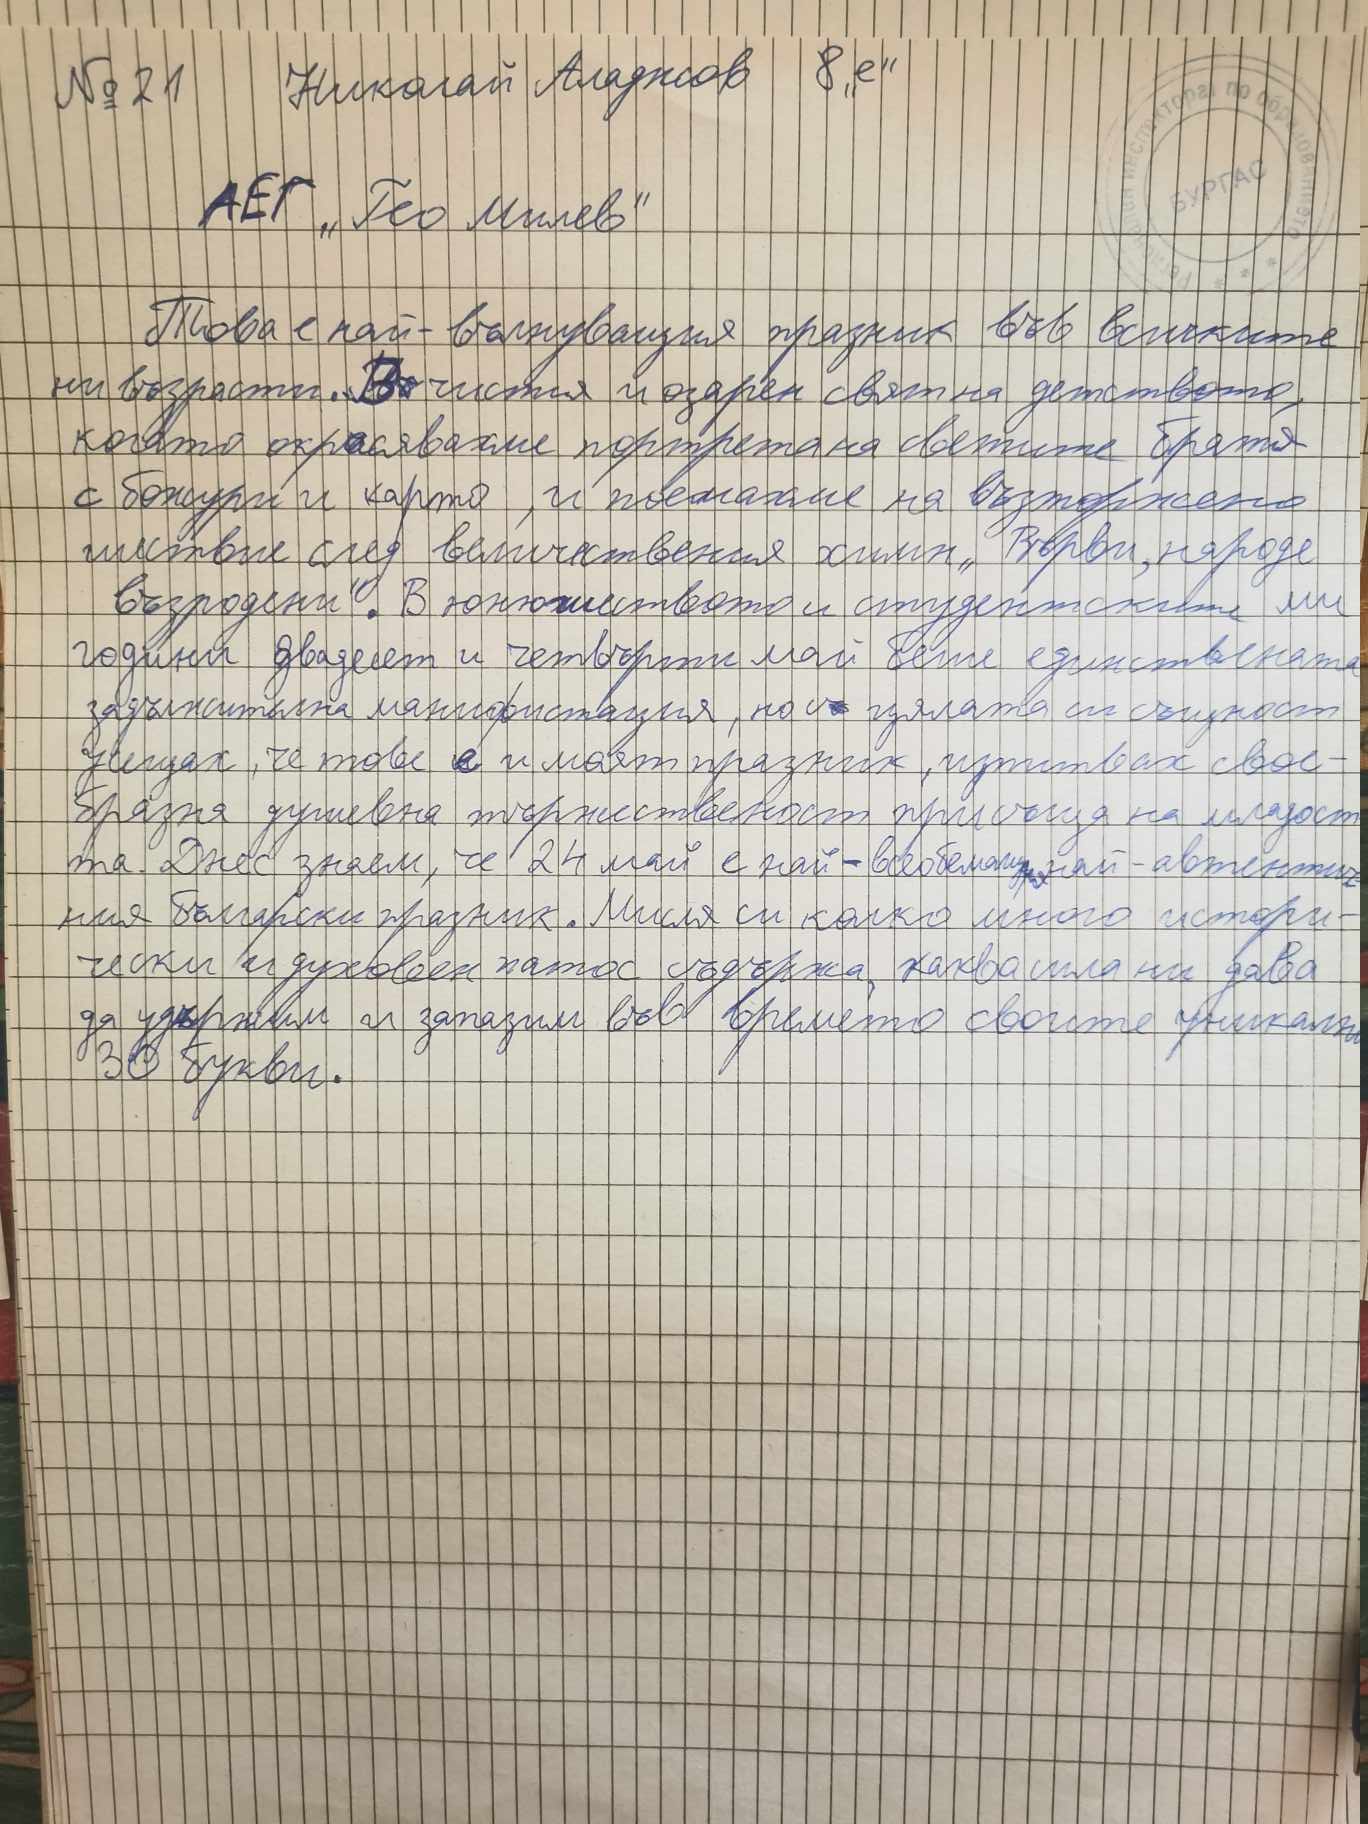 № 21 Николай Аладжов 8 „е“
Регионален инспекторат по образованието
БУРГАС
АЕГ „Гео Милев“
Това е най-вълнуващия празник във всичките
ни възрасти. В чистия и озарен свят на детството,
когато окрасявахме портрета на светите братя
с божури и карто, и поемахме на възторжено
шествие след величествения химн „Върви, народе
възродени“. В юношеството и студентските ми
години двадесет и четвърти май беше единствената
задължителна манифистация, но с цялата си същност
усещах, че това е и моят празник, изпитвах свое-
бразна душевна тържественост присъща на младост
та. Днес знаем, че 24 май е най-всеобемащия, най-автентич
ния български празник. Мисля си колко много истори-
чески и духовен патос съдържа, каква сила ни дава
да удържим и запазим във времето своите уникални
30 букви.